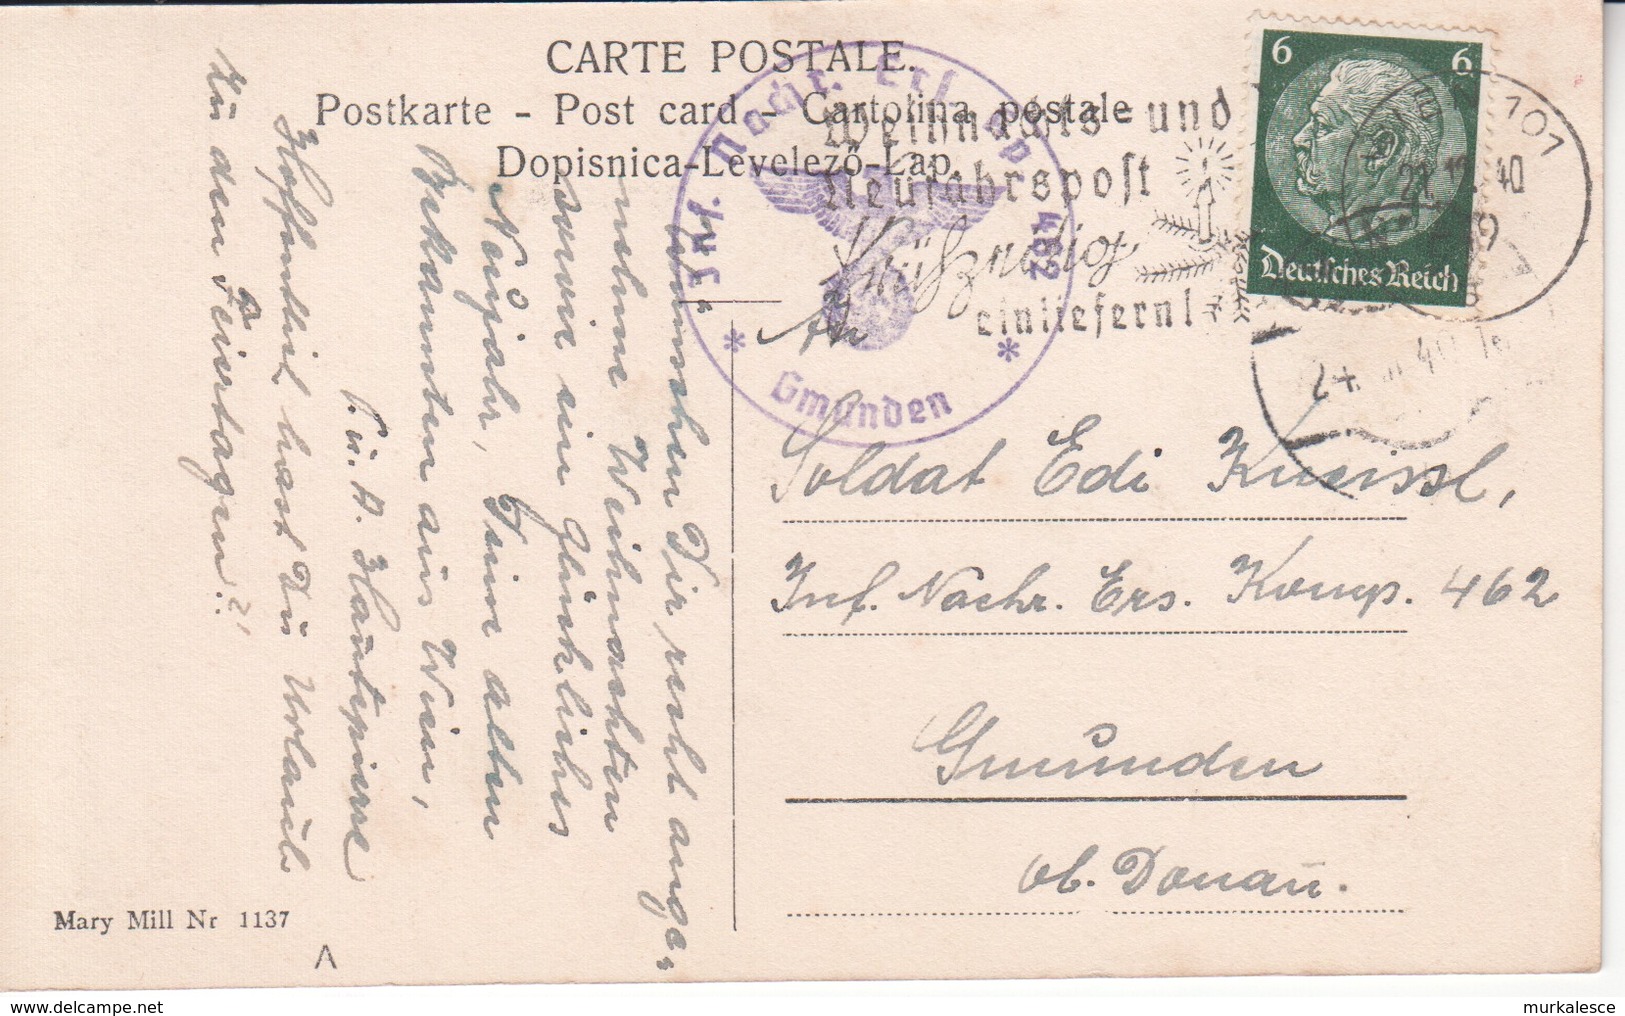 CARTE POSTALE.
Postkarte - Post card - Cartolina postale
Dopisnica-Levelező-Lap
6 6
Deutsches Reich
Weihnachts- und
Neujahrspost
frühzeitig
einliefern!
Inf. Nachr. Ers. Kp. 462
* Gmunden *
101
40
An
Soldat Edi Kneissl,
Inf. Nachr. Ers. Komp. 462
Gmunden
ob. Donau.
wünschen Dir recht ange-
nehme Weihnachten
sowie ein glückliches
Neujahr, Deine alten
Bekannten aus Wien,
Hoffentlich hast Du Urlaub
zu den Feiertagen?!
Mary Mill Nr 1137
murkalesce